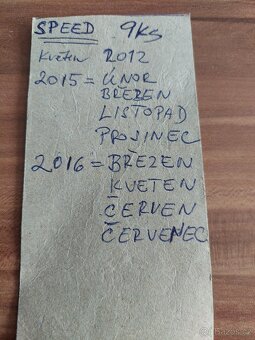 SPEED 9Ks
Květen 2012
2015 = ÚNOR
BŘEZEN
LISTOPAD
PROJINEC
2016 = BŘEZEN
KVETEN
ČERVEN
ČERVENEC